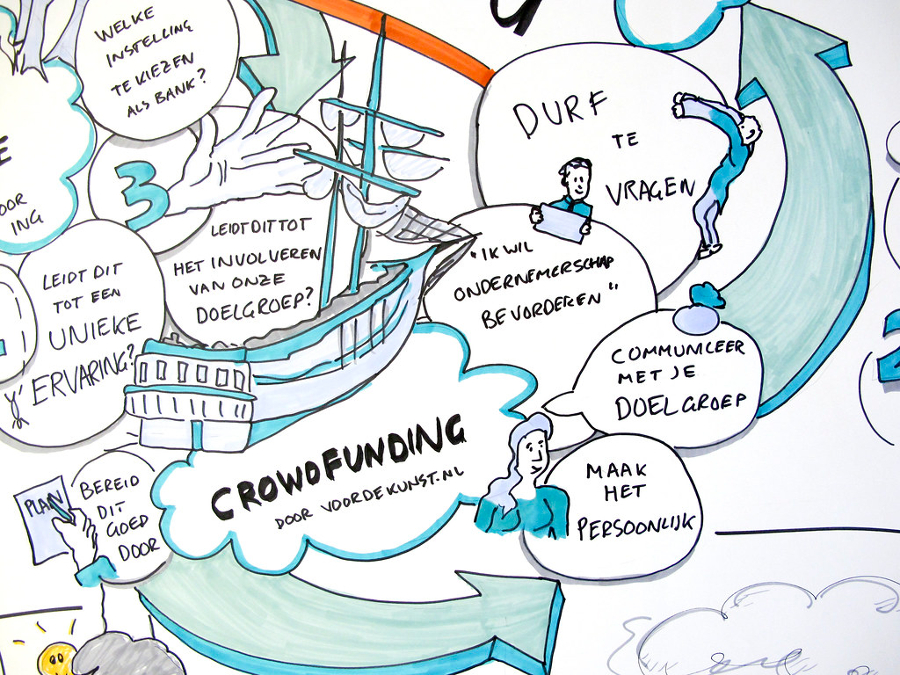 WELKE
INSTELLING
TE KIEZEN
ALS BANK?
3
LEIDT DIT TOT
HET INVOLVEREN
VAN ONZE
DOELGROEP?
LEIDT DIT
TOT EEN
UNIEKE
ERVARING?
DURF
TE
VRAGEN
"IK WIL
ONDERNEMERSCHAP
BEVORDEREN"
COMMUNICEER
MET JE
DOELGROEP
MAAK
HET
PERSOONLIJK
CROWDFUNDING
DOOR VOORDEKUNST.NL
PLAN
BEREID
DIT
GOED
DOOR
E
OOR
ING
2